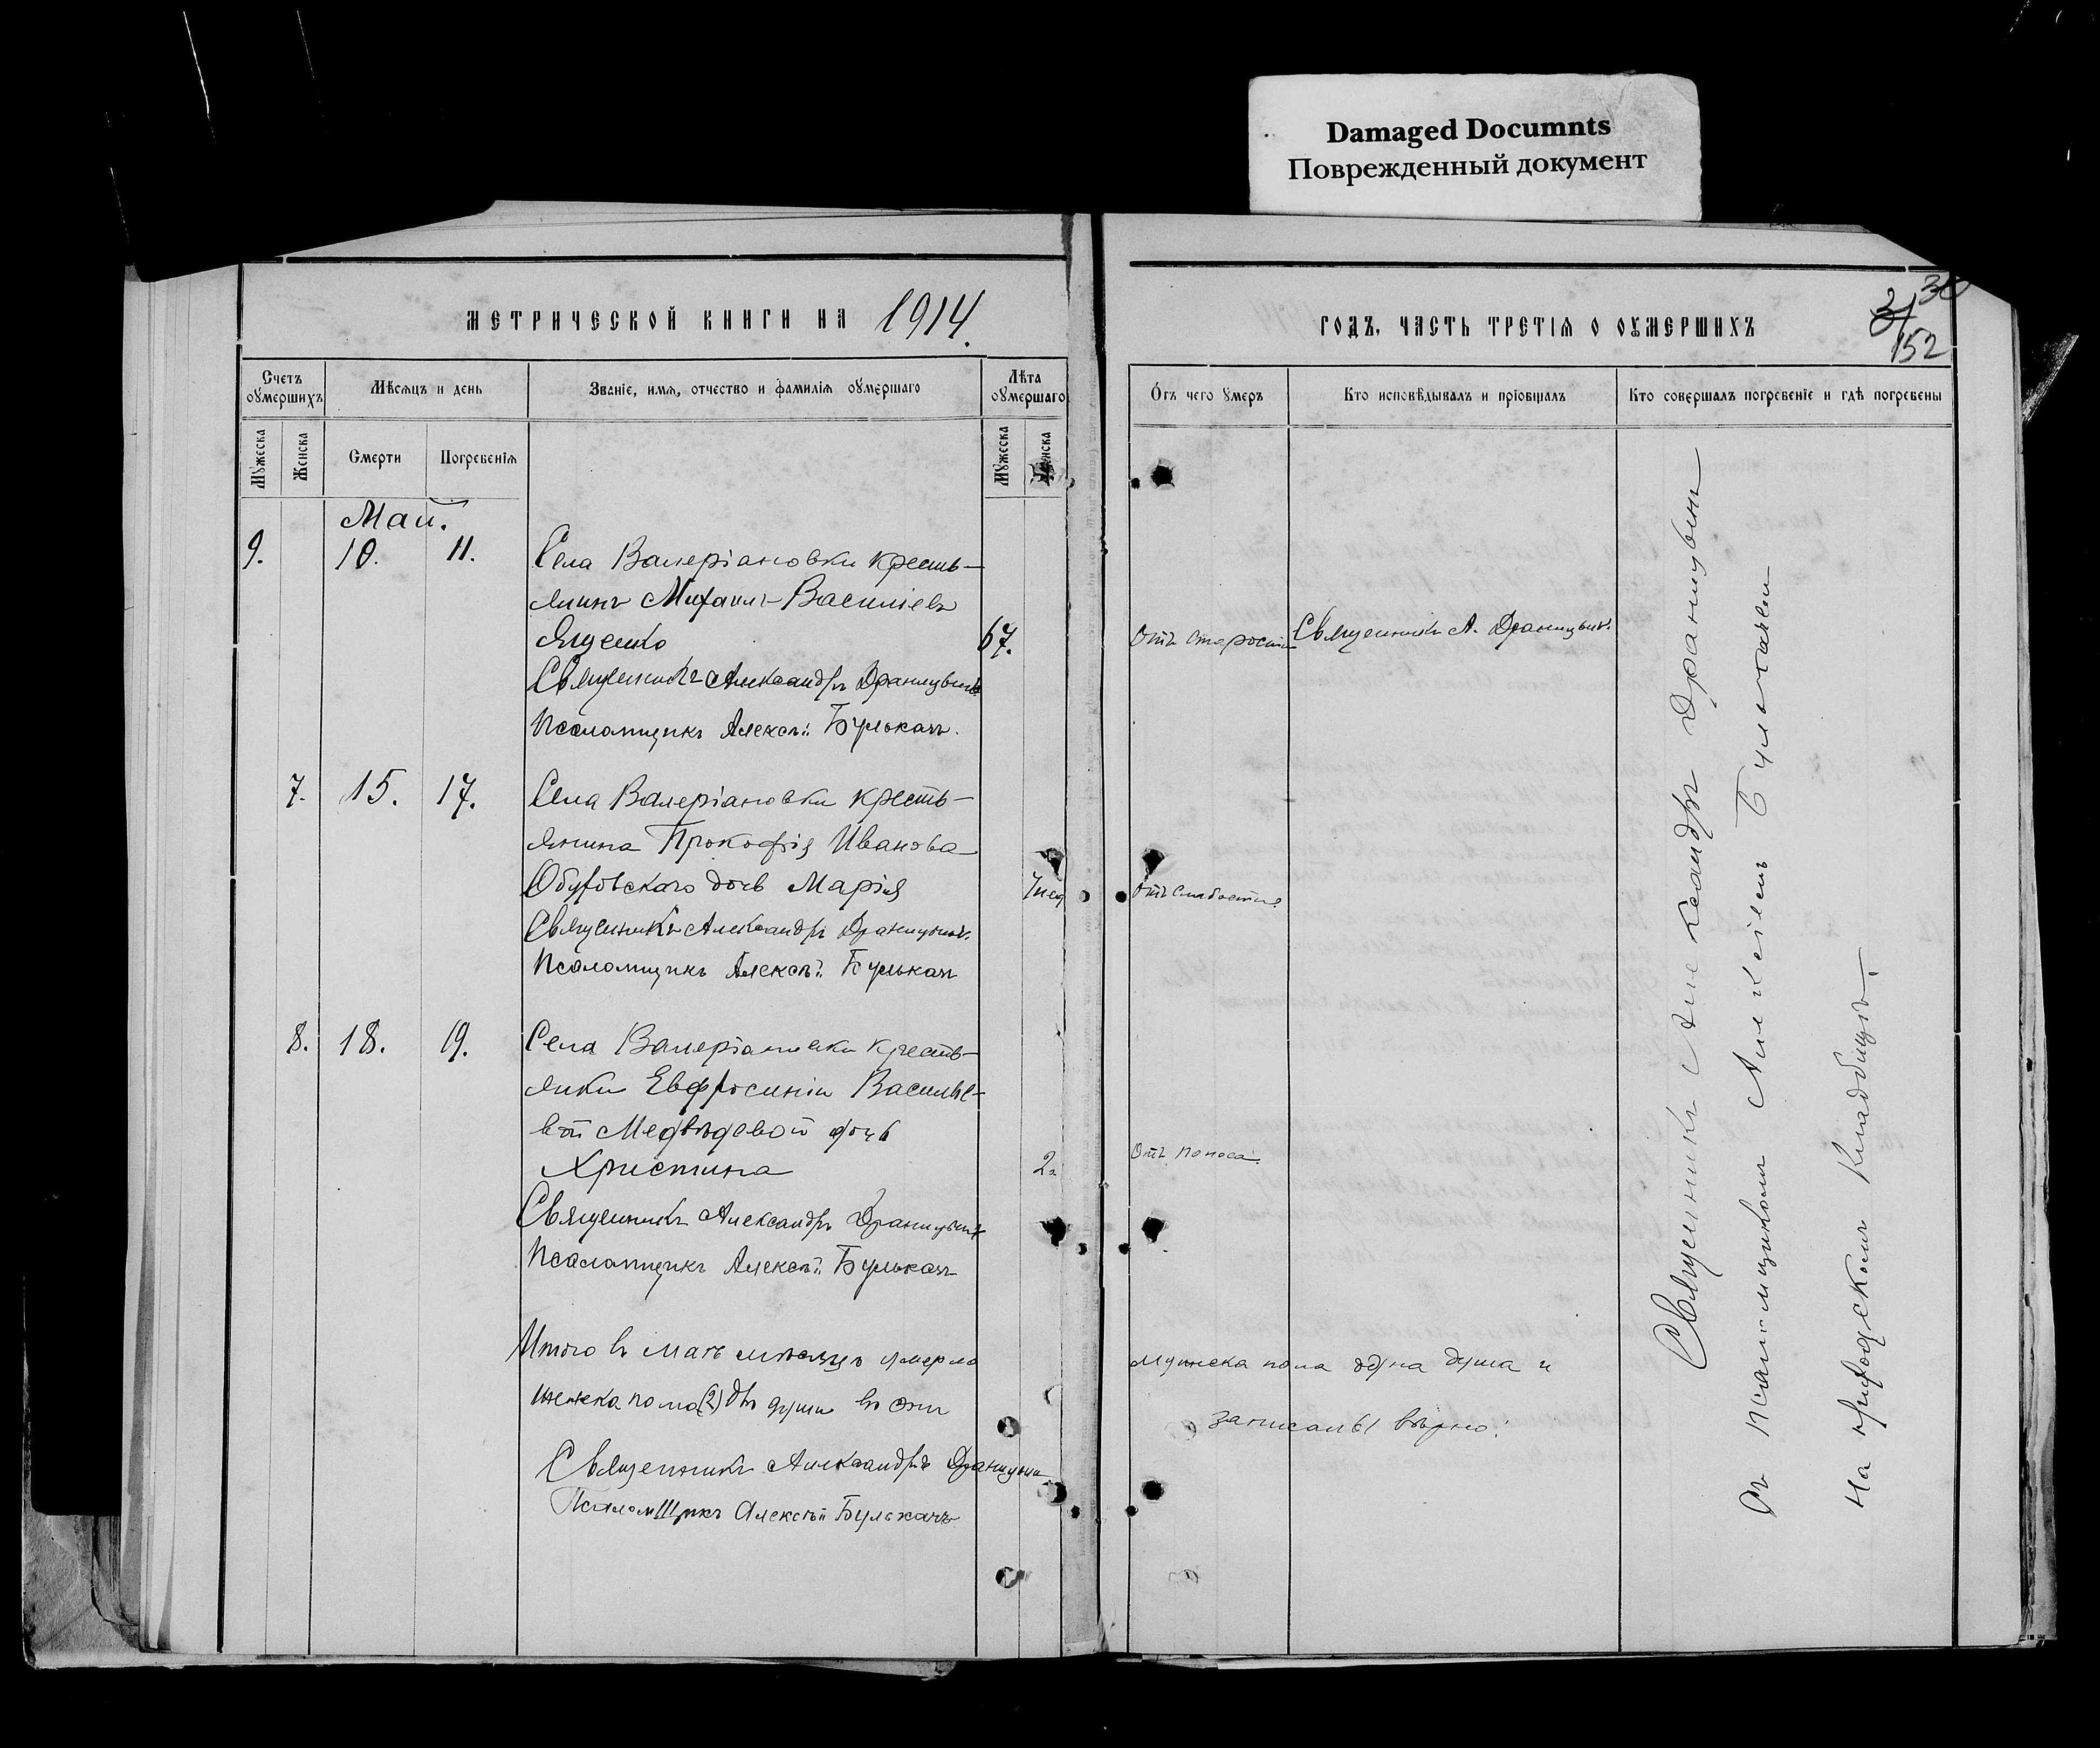 Damaged Documnts
Поврежденный документ
МЕТРИЧЕСКОЙ КНИГИ НА 1914.
ГОДЪ, ЧАСТЬ ТРЕТІЯ О ОУМЕРШИХЪ
30
31
152
Счетъ оумершихъ
Мѣсяцъ и день
Званіе, имя, отчество и фамилія оумершаго
Лѣта оумершаго
Отъ чего умеръ
Кто исповѣдывалъ и пріобщалъ
Кто совершалъ погребеніе и гдѣ погребены
Мужеска
Женска
Смерти
Погребенія
Мужеска
Женска
Май.
9. 10. 11. Села Валеріановки кресть-
янинъ Михаилъ Васильевъ
Ященко 67. Отъ старости Священникъ А. Драницынъ.
Священникъ Александръ Драницынъ
Псаломщикъ Алексѣй Булькачъ.
7. 15. 17. Села Валеріановки кресть-
янина Прокофія Иванова
Обуховскаго дочь Марія 7 нед Отъ слабости.
Священникъ Александръ Драницынъ.
Псаломщикъ Алексѣй Булькачъ
8. 18. 19. Села Валеріановки кресть-
янки Евфросиніи Василье-
вой Медвѣдевой дочь
Христина 2 г. Отъ поноса.
Священникъ Александръ Драницынъ
Псаломщикъ Алексѣй Булькачъ
Итого въ маѣ мѣсяцѣ умерло мужеска пола одна душа и
женска пола (2) двѣ души записаны вѣрно:
Священникъ Александръ Драницынъ
Псаломщикъ Алексѣй Булькачъ
Священникъ Александръ Драницынъ
съ псаломщикомъ Алексѣемъ Булькачемъ
на приходскомъ кладбищѣ.